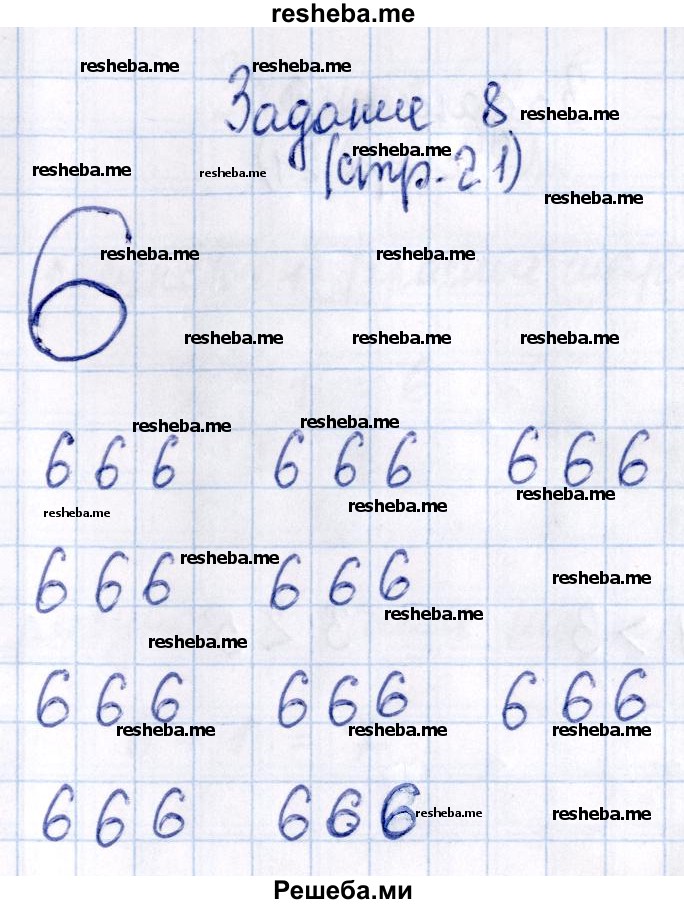 resheba.me
resheba.me resheba.me
Задание 8 resheba.me
resheba.me resheba.me resheba.me
(стр. 21) resheba.me
6 resheba.me resheba.me
resheba.me resheba.me resheba.me
resheba.me resheba.me
6 6 6 6 6 6 6 6 6
resheba.me resheba.me resheba.me
6 6 6 resheba.me 6 6 6 resheba.me
resheba.me resheba.me
6 6 6 6 6 6 6 6 6
resheba.me resheba.me resheba.me
6 6 6 6 6 6 resheba.me resheba.me
Решеба.ми